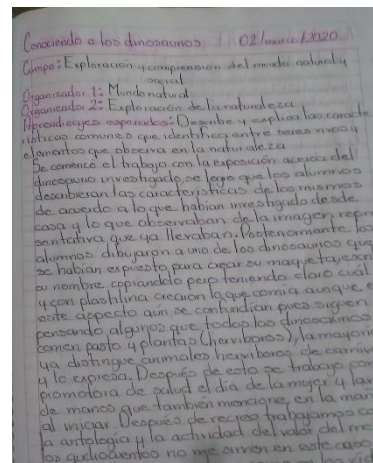 Conociendo a los dinosaurios 02/marzo/2020
Campo: Exploración y comprensión del mundo natural y
social
Organizador 1: Mundo natural
Organizador 2: Exploración de la naturaleza
Aprendizajes esperados: Describe y explica las caracte
rísticas comunes que identifica entre seres vivos y
elementos que observa en la naturaleza
Se comenzó el trabajo con la exposición acerca del
dinosaurio investigado, se logro que los alumnos
describieran las características de los mismos
de acuerdo a lo que habían investigado desde
casa y lo que observaban de la imagen repre
sentativa que ya llevaban. Posteriormente los
alumnos dibujaron a uno de los dinosaurios que
se habían expuesto para crear su maqueta,
su nombre copiandolo pero teniendo claro cuál
y con plashlina crearon lo que comía aunque e
este aspecto aún se confundían pues siguen
pensando algunos que todos los dinosaurios
comen pasto y plantas (herviboros), la mayoría
ya distingue animales herviboros de carnív
y lo expresa. Después de esto se trabajo con
promotora de salud el día de la mujer y lav
de manos que también mencione en la mañ
al iniciar. Después de recreo trabajamos co
la antología y la actividad del valor del me
los
no me sirven en este caso